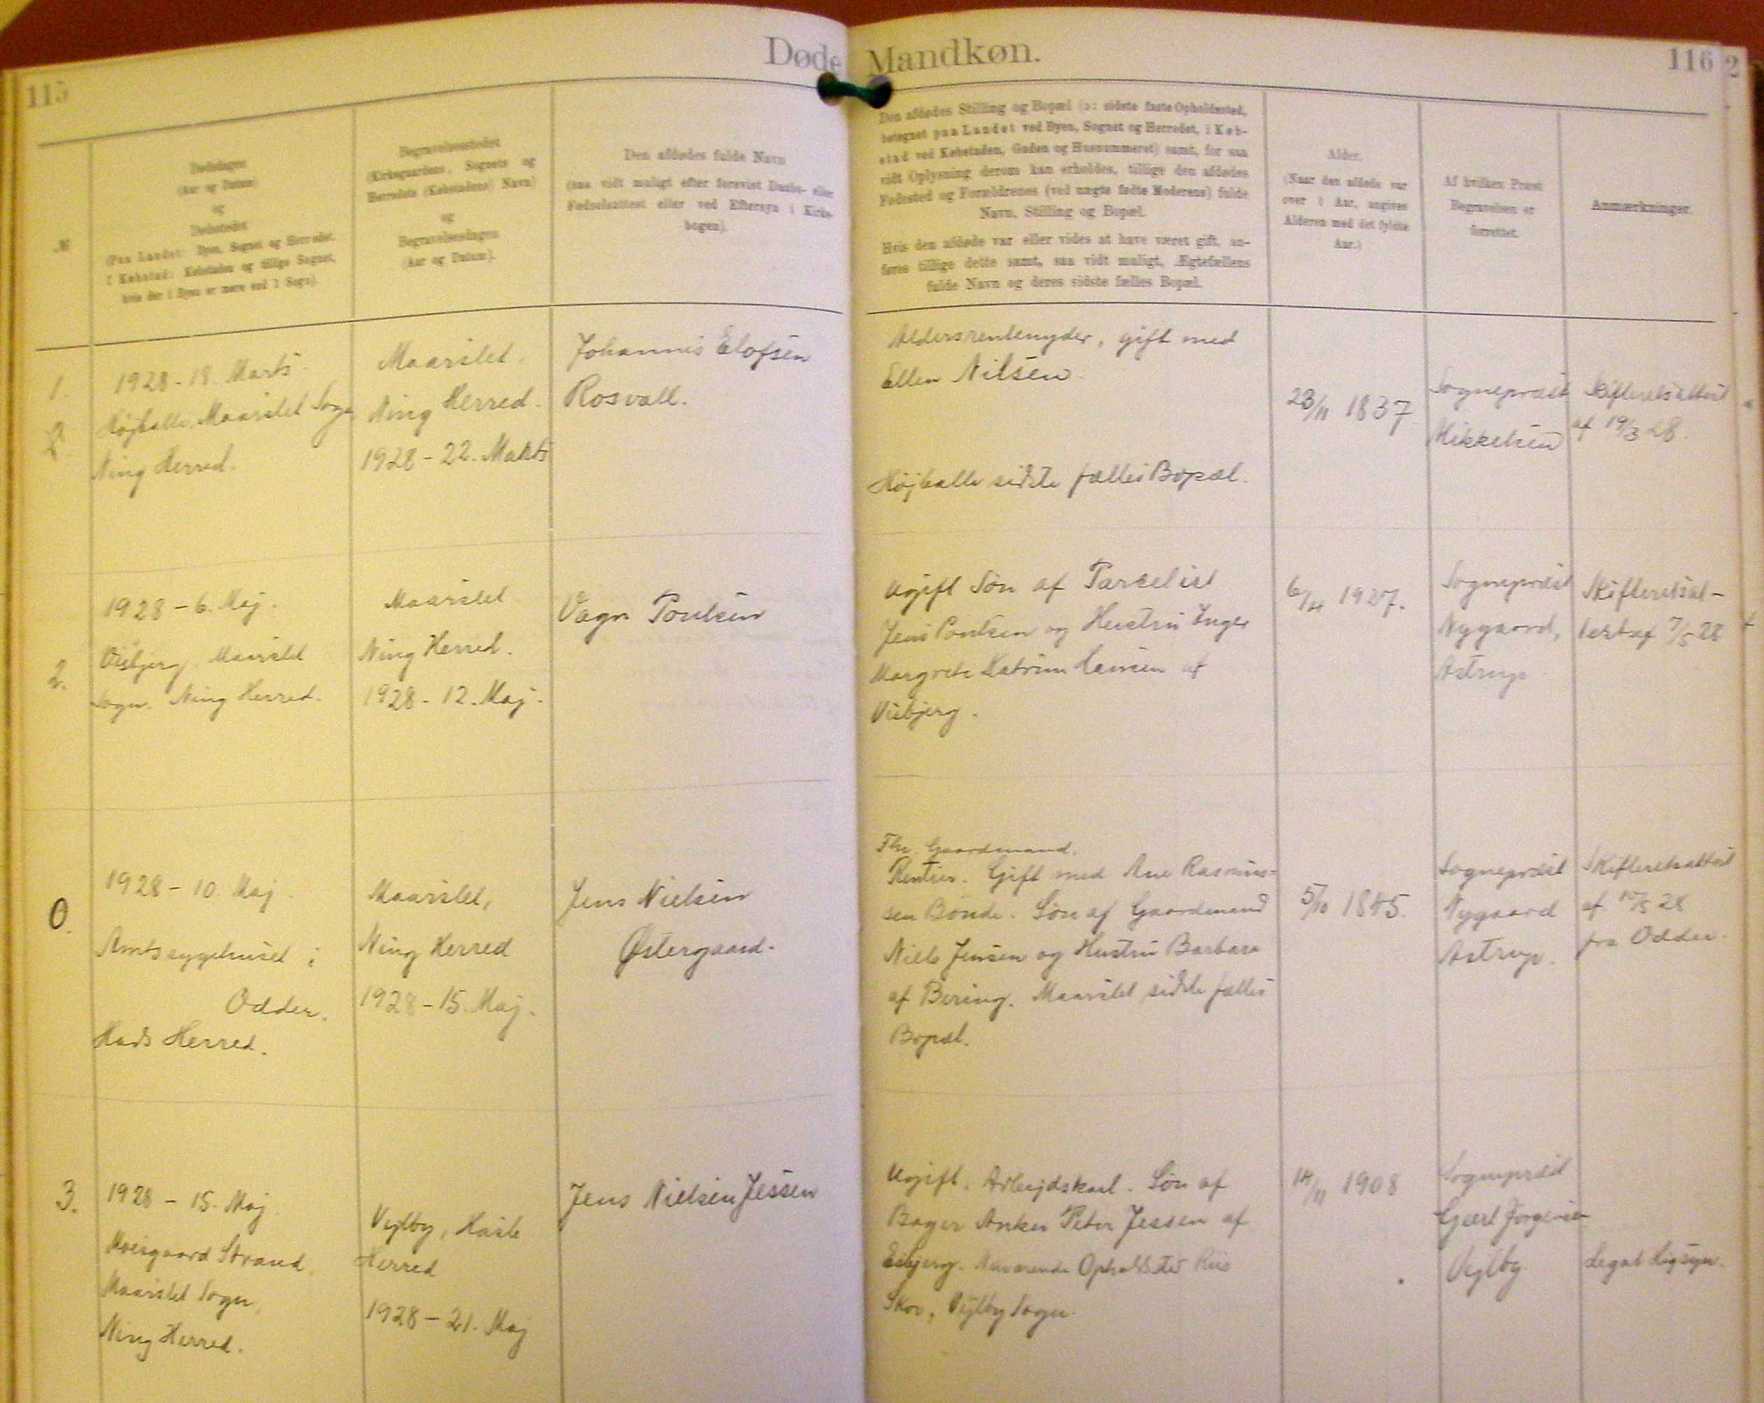 115
Døde
Mandkøn.
116
2
№
Dødsdagen
(Aar og Datum)
og
Dødsstedet
(Paa Landet: Byen, Sognet og Herredet,
i Købstad: Købstaden og tillige Sognet,
hvis der i Byen er mere end 1 Sogn).
Begravelsesstedet
(Kirkegaardens, Sognets og
Herredets (Købstadens) Navn)
og
Begravelsesdagen
(Aar og Datum).
Den afdødes fulde Navn
(saa vidt muligt efter forevist Daabs- eller
Fødselsattest eller ved Eftersyn i Kirke-
bogen).
Den afdødes Stilling og Bopæl (ɔ: sidste faste Opholdssted,
betegnet paa Landet ved Byen, Sognet og Herredet, i Køb-
stad ved Købstaden, Gaden og Husnummeret) samt, for saa
vidt Oplysning derom kan erholdes, tillige den afdødes
Fødested og Forældrenes (ved uægte fødte Moderens) fulde
Navn, Stilling og Bopæl.
Hvis den afdøde var eller vides at have været gift, an-
føres tillige dette samt, saa vidt muligt, Ægtefællens
fulde Navn og deres sidste fælles Bopæl.
Alder.
(Naar den afdøde var
over 1 Aar, angives
Alderen med det fyldte
Aar.)
Af hvilken Præst
Begravelsen er
forrettet.
Anmærkninger.
1.
1928 - 18. Marts.
Højballe, Maarslet Sogn
Ning Herred.
Maarslet.
Ning Herred.
1928 - 22. Marts
Johannes Elofsen
Rosvall.
Aldersrentenyder, gift med
Ellen Nilsen
Højballe sidste fælles Bopæl.
23/11 1837
Sognepræst
Mikkelsen
Skifteretsattest
af 19/3 28.
2.
1928 - 6. Maj.
Visbjerg, Maarslet
Sogn. Ning Herred.
Maarslet
Ning Herred.
1928 - 12. Maj.
Vagn Poulsen
Ugift Søn af Parcelist
Jens Poulsen og Hustru Inger
Margrete Katrine Hansen af
Visbjerg.
1927.
Sognepræst
Nygaard,
Astrup
Skifteretsat-
test af 7/5 28
0.
1928 - 10. Maj.
Amtssygehuset i
Odder.
Hads Herred.
Maarslet,
Ning Herred
1928 - 15. Maj.
Jens Nielsen
Østergaard.
Fhv. Gaardmand.
Rentier. Gift med Ane Rasmus-
sen Bonde. Søn af Gaardmand
Niels Jensen og Hustru Barbara
af Bering. Maarslet sidste fælles
Bopæl.
5/10 1845.
Sognepræst
Nygaard
Astrup.
Skifteretsattest
af 15/5 28
fra Odder.
3.
1928 - 15. Maj
Moesgaard Strand,
Maarslet Sogn,
Ning Herred.
Vejlby, Hasle
Herred
1928 - 21. Maj
Jens Nielsen Jessen
Ugift. Arbejdskarl. Søn af
Bager Anker Peter Jessen af
Esbjerg. Nuværende Opholdsted Riis
Skov, Vejlby Sogn.
14/11 1908
Sognepræst
Gært Jørgensen
Vejlby
Legal Ligsyn.